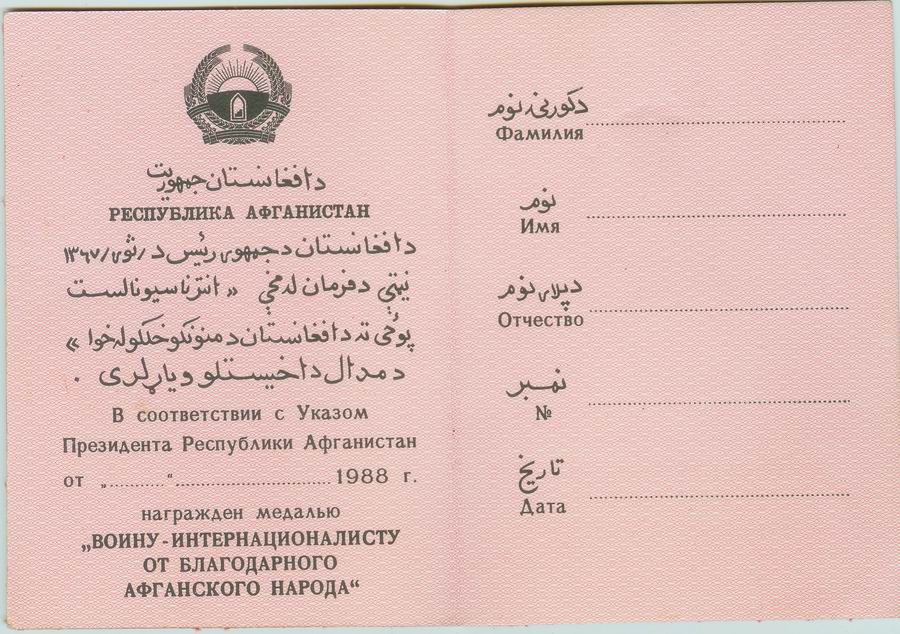 دافغانستان جمهوریت
РЕСПУБЛИКА АФГАНИСТАН
دافغانستان دجمهوری رئیس د /ثور/ ۱۳۶۷
نیټې دفرمان له مخې « انترناسیونالست
پوځی ته دافغانستان دمنونکو خلکو له خوا »
دمدال داخیستلو ویاړ لری .
В соответствии с Указом
Президента Республики Афганистан
от „..........“............................1988 г.
награжден медалью
„ВОИНУ-ИНТЕРНАЦИОНАЛИСТУ
ОТ БЛАГОДАРНОГО
АФГАНСКОГО НАРОДА“
دکورنۍ نوم
Фамилия
نوم
Имя
دپلار نوم
Отчество
نمبر
№
تاریخ
Дата